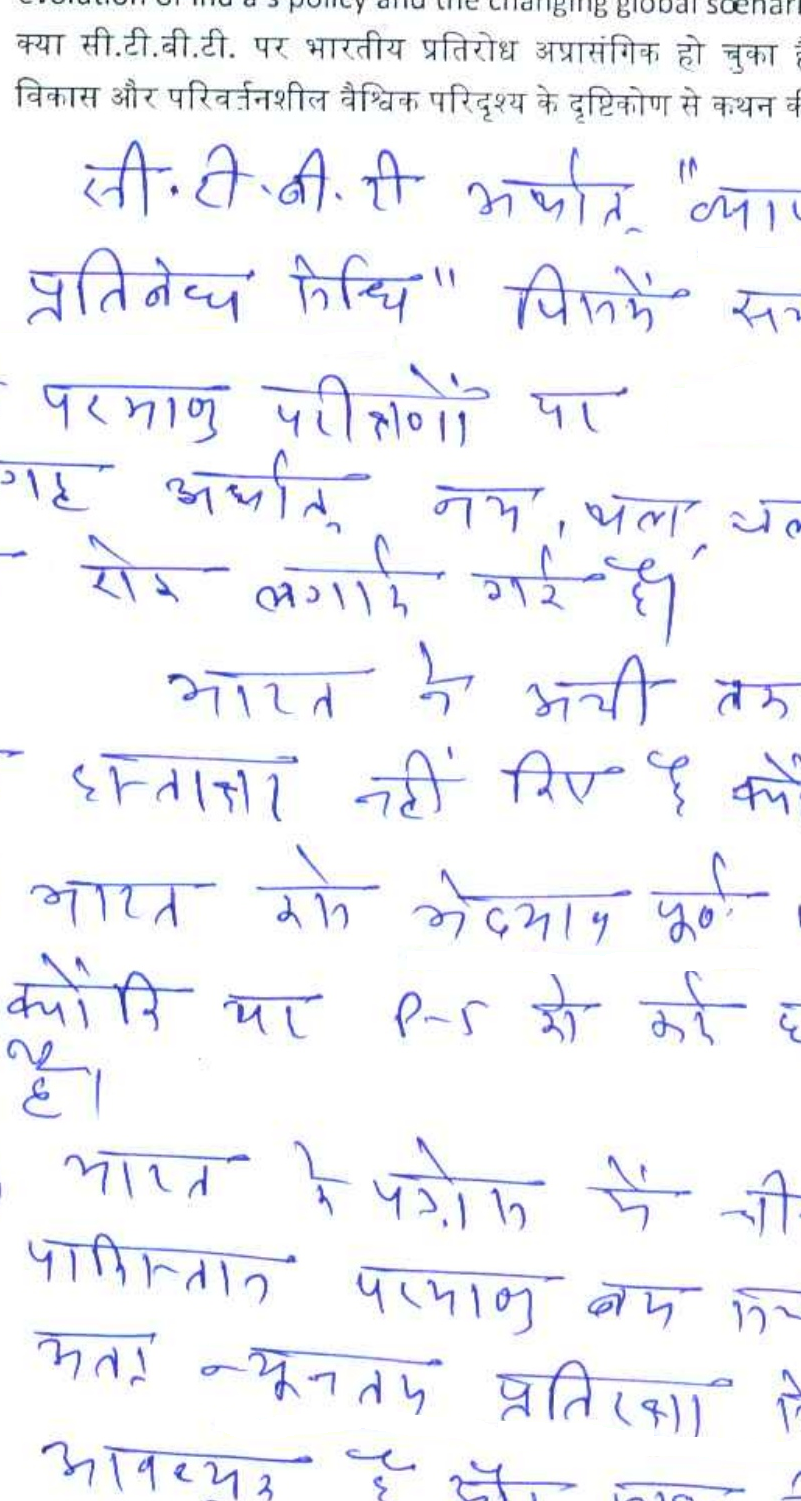 evolution of India's policy and the changing global scenari
क्या सी.टी.बी.टी. पर भारतीय प्रतिरोध अप्रासंगिक हो चुका है
विकास और परिवर्तनशील वैश्विक परिदृश्य के दृष्टिकोण से कथन की
सी.टी.बी.टी अर्थात् "व्याप
प्रतिषेध संधि" जिसमें सभ
परमाणु परीक्षणों पर
गह अर्थात् नभ, थल, जल
रोक लगाई गई है।
भारत ने अभी तक
हस्ताक्षर नहीं किए है क्यों
भारत इसे भेदभाव पूर्ण
क्योंकि यह P-5 को कई छ
है।
भारत के पड़ोस में ची
पाकिस्तान परमाणु बम
अतः न्यूनतम प्रतिरक्षा
आवश्यक है और